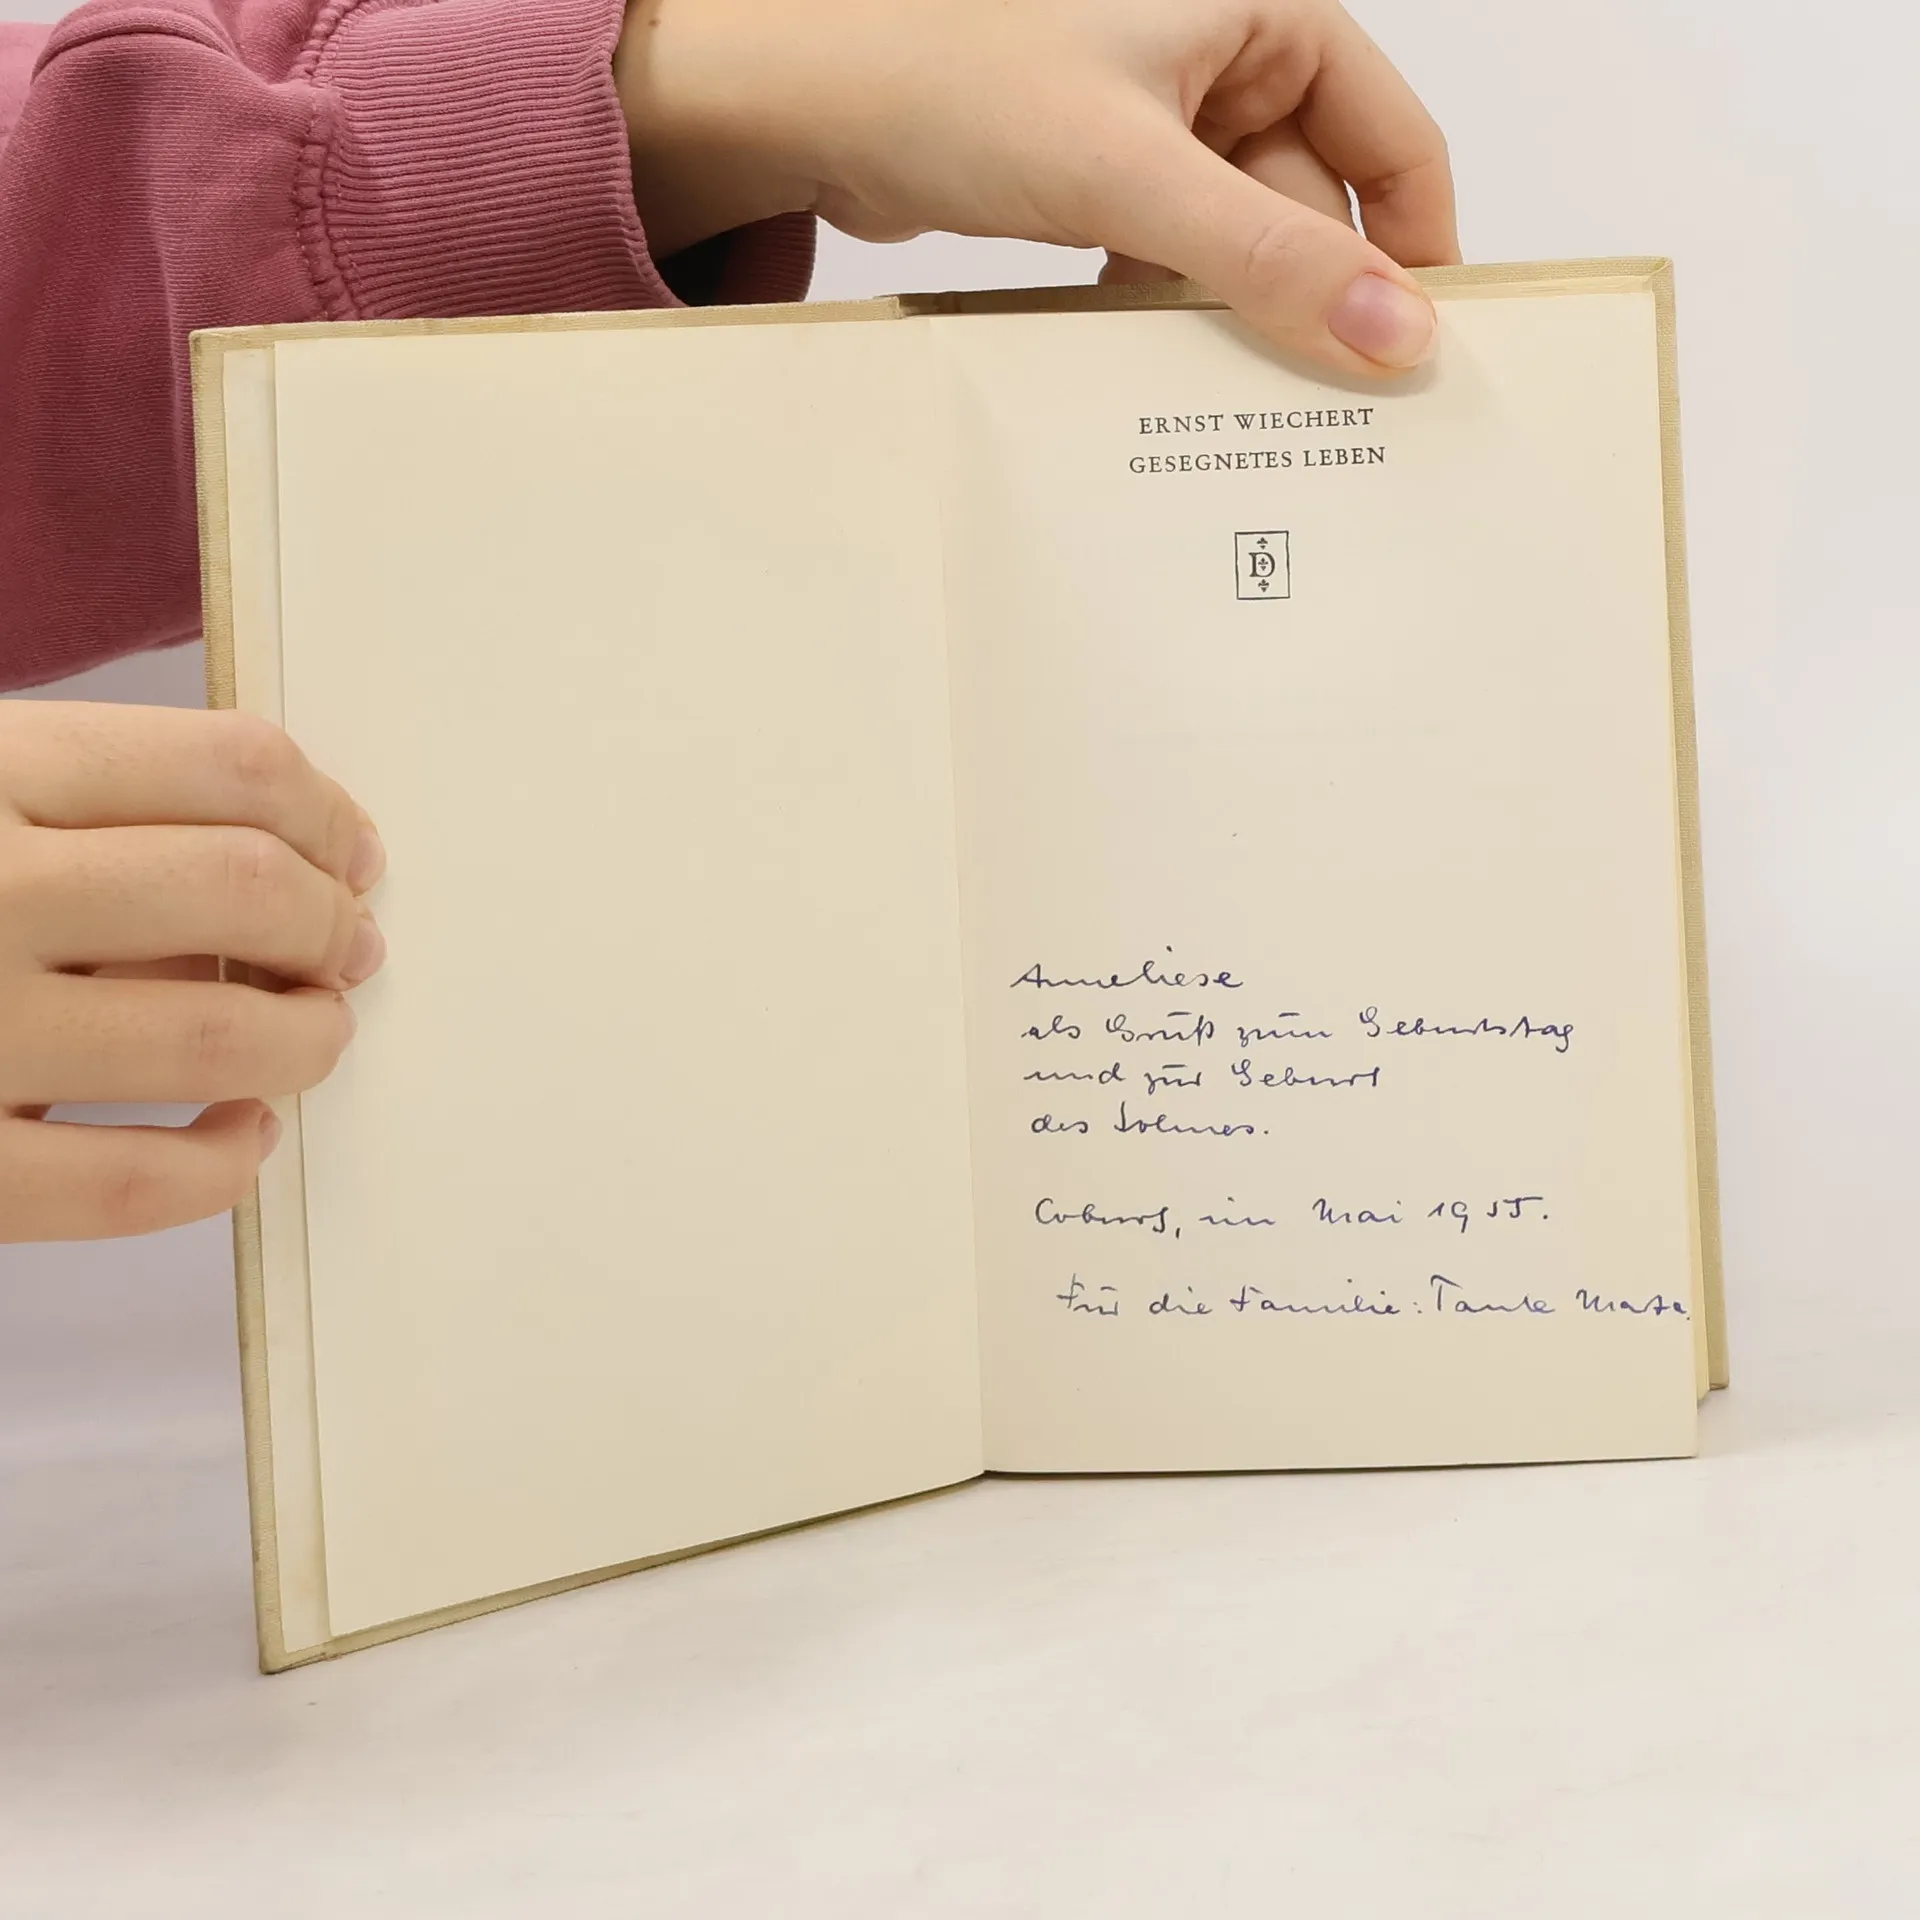 ERNST WIECHERT
GESEGNETES LEBEN
D
Anneliese
als Gruß zum Geburtstag
und zur Geburt
des Sohnes.
Coburg, im Mai 1955.
Für die Familie: Tante